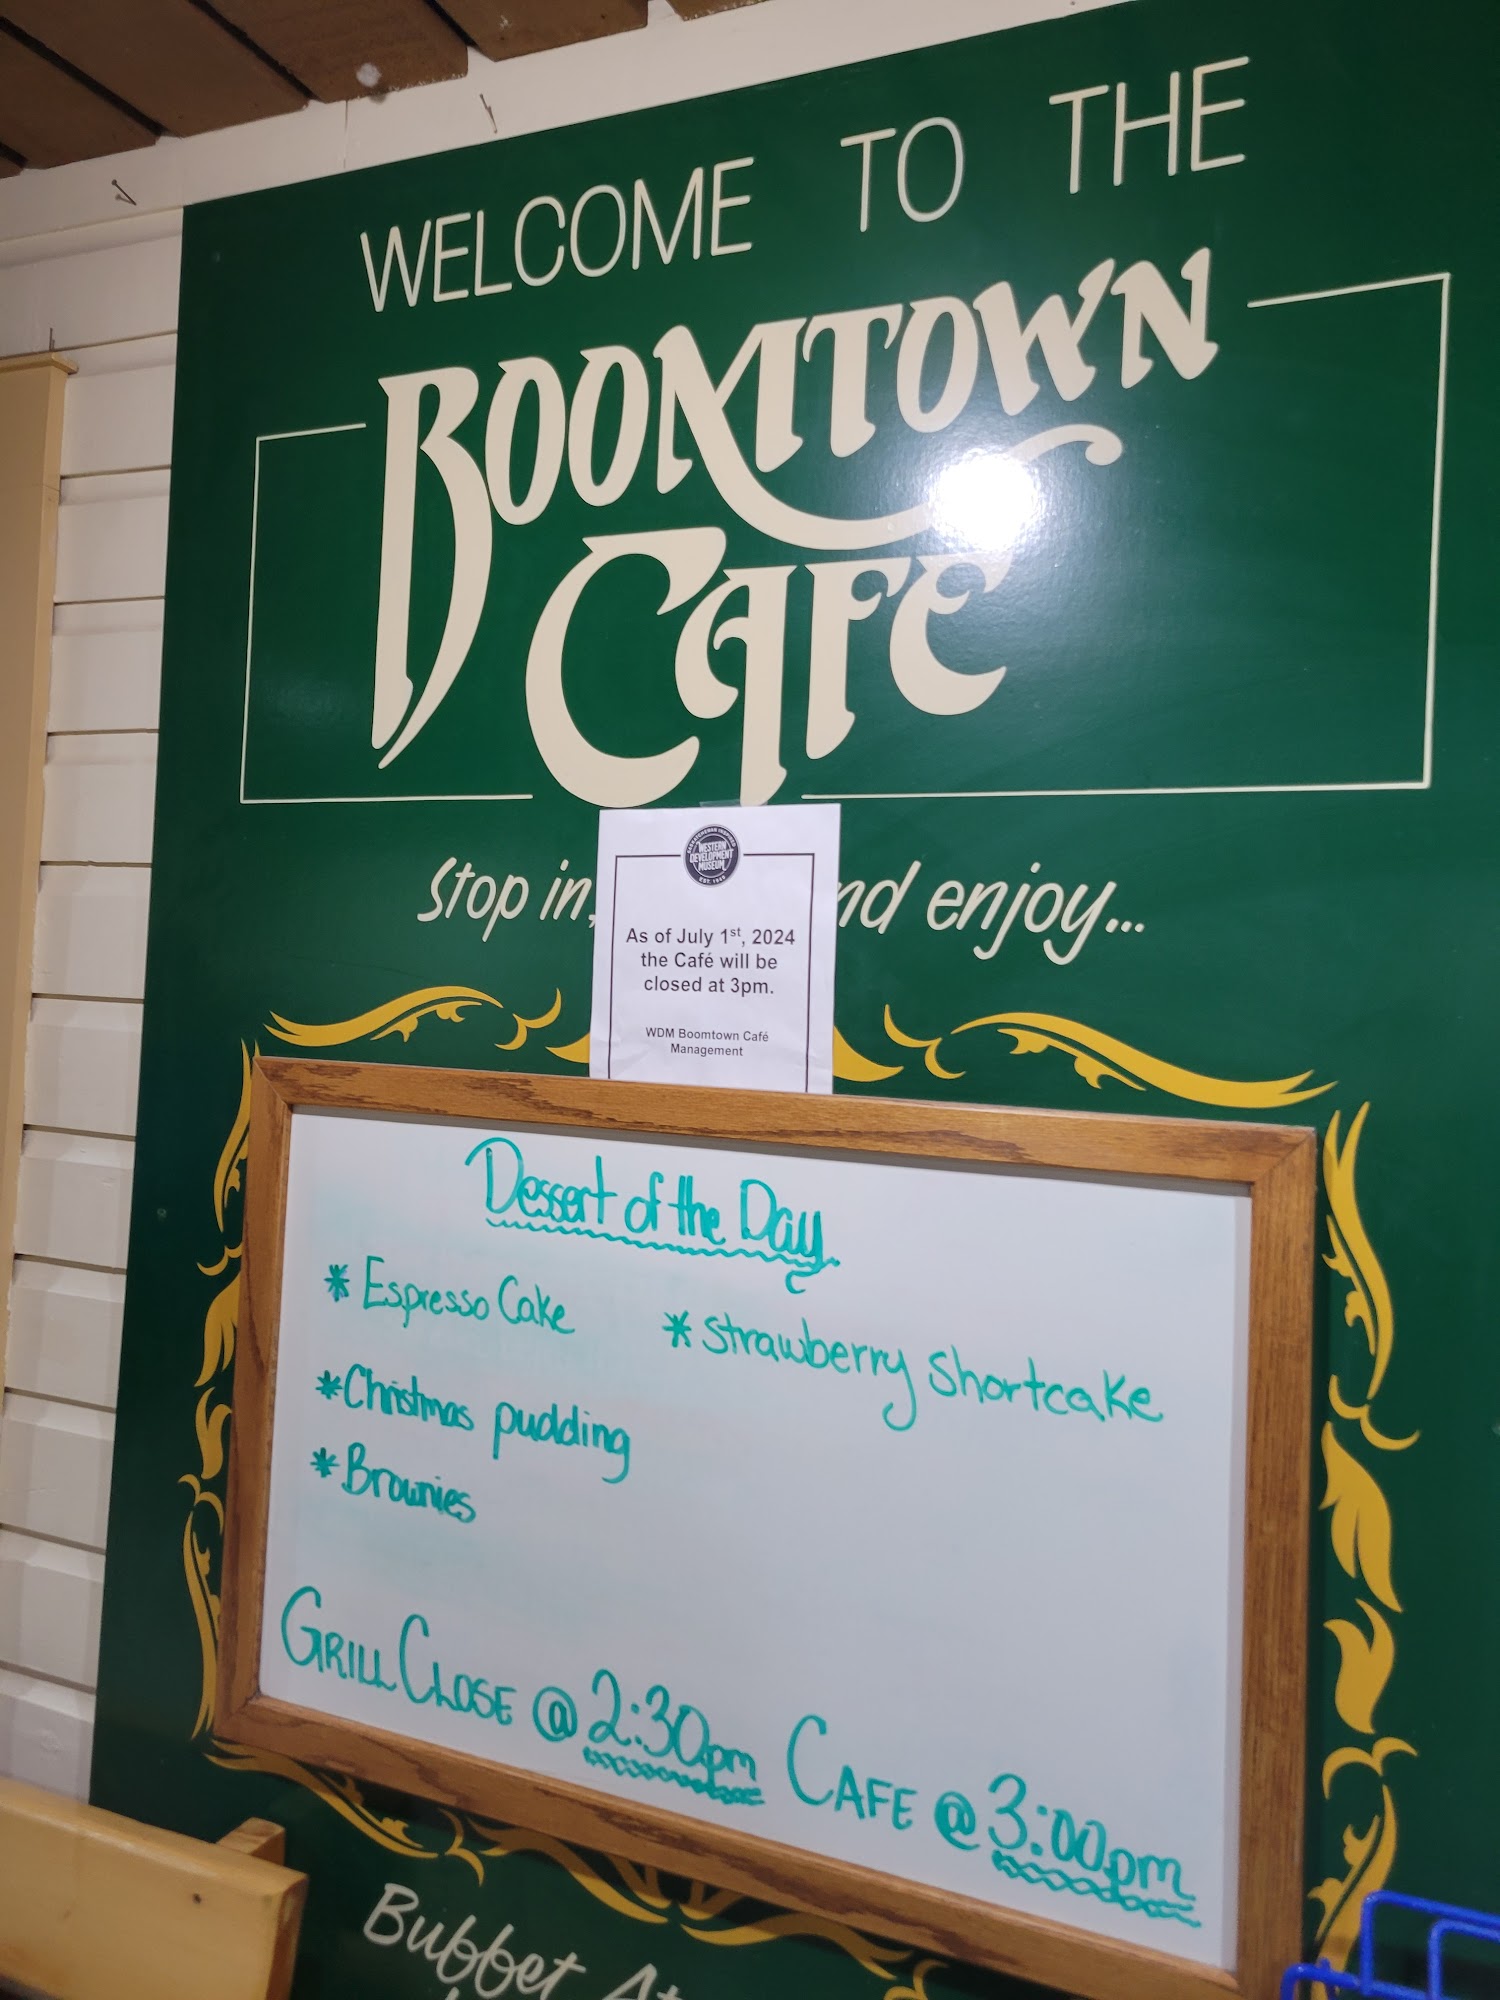 WELCOME TO THE
BOOMTOWN
CAFE
Stop in, nd enjoy...
SASKATCHEWAN INSPIRED
WESTERN
DEVELOPMENT
MUSEUM
EST. 1949
As of July 1st, 2024
the Café will be
closed at 3pm.
WDM Boomtown Café
Management
Dessert of the Day
* Espresso Cake * Strawberry Shortcake
* Christmas pudding
* Brownies
GRILL CLOSE @ 2:30pm CAFE @ 3:00pm
Buffet At